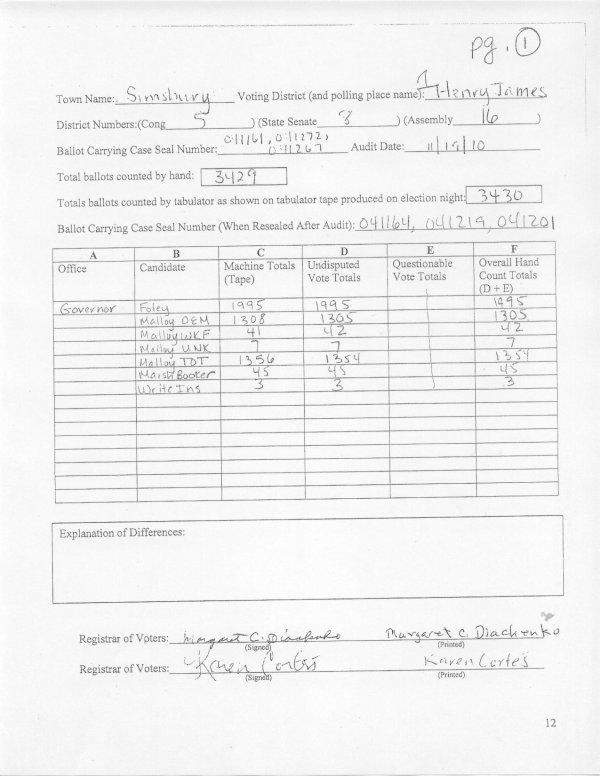 pg. 1
Town Name: Simsbury Voting District (and polling place name): 1 Henry James
District Numbers:(Cong 5 ) (State Senate 8 ) (Assembly 16 )
041161, 041272,
Ballot Carrying Case Seal Number: 041267 Audit Date: 11/19/10
Total ballots counted by hand: 3429
Totals ballots counted by tabulator as shown on tabulator tape produced on election night: 3430
Ballot Carrying Case Seal Number (When Resealed After Audit): 041164, 041219, 041201
A B C D E F
Office Candidate Machine Totals (Tape) Undisputed Vote Totals Questionable Vote Totals Overall Hand Count Totals (D + E)
Governor Foley 1995 1995 1995
Malloy DEM 1308 1305 1305
Malloy WKF 41 42 42
Malloy UNK 7 7 7
Malloy TOT 1356 1354 1354
Marsh Booker 45 45 45
Write Ins 3 3 3
Explanation of Differences:
Registrar of Voters: Margaret C. Diachenko Margaret C. Diachenko
(Signed) (Printed)
Registrar of Voters: Karen Cortes Karen Cortes
(Signed) (Printed)
12